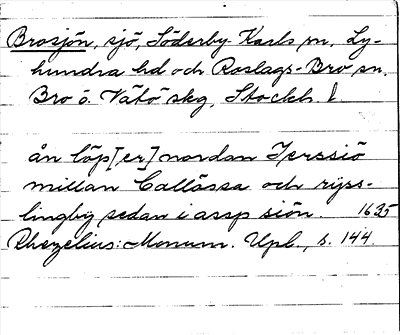 Brosjön, sjö, Söderby-Karls sn, Ly-
hundra hd och Roslags-Bro sn,
Bro o. Vätö skg, Stockh. l.
ån löp[er] nordan Jerssiö
millan Callåssa och rijss-
lingby sedan i assp siön. 1635
Rhezelius: Monum. Upl., s. 144.